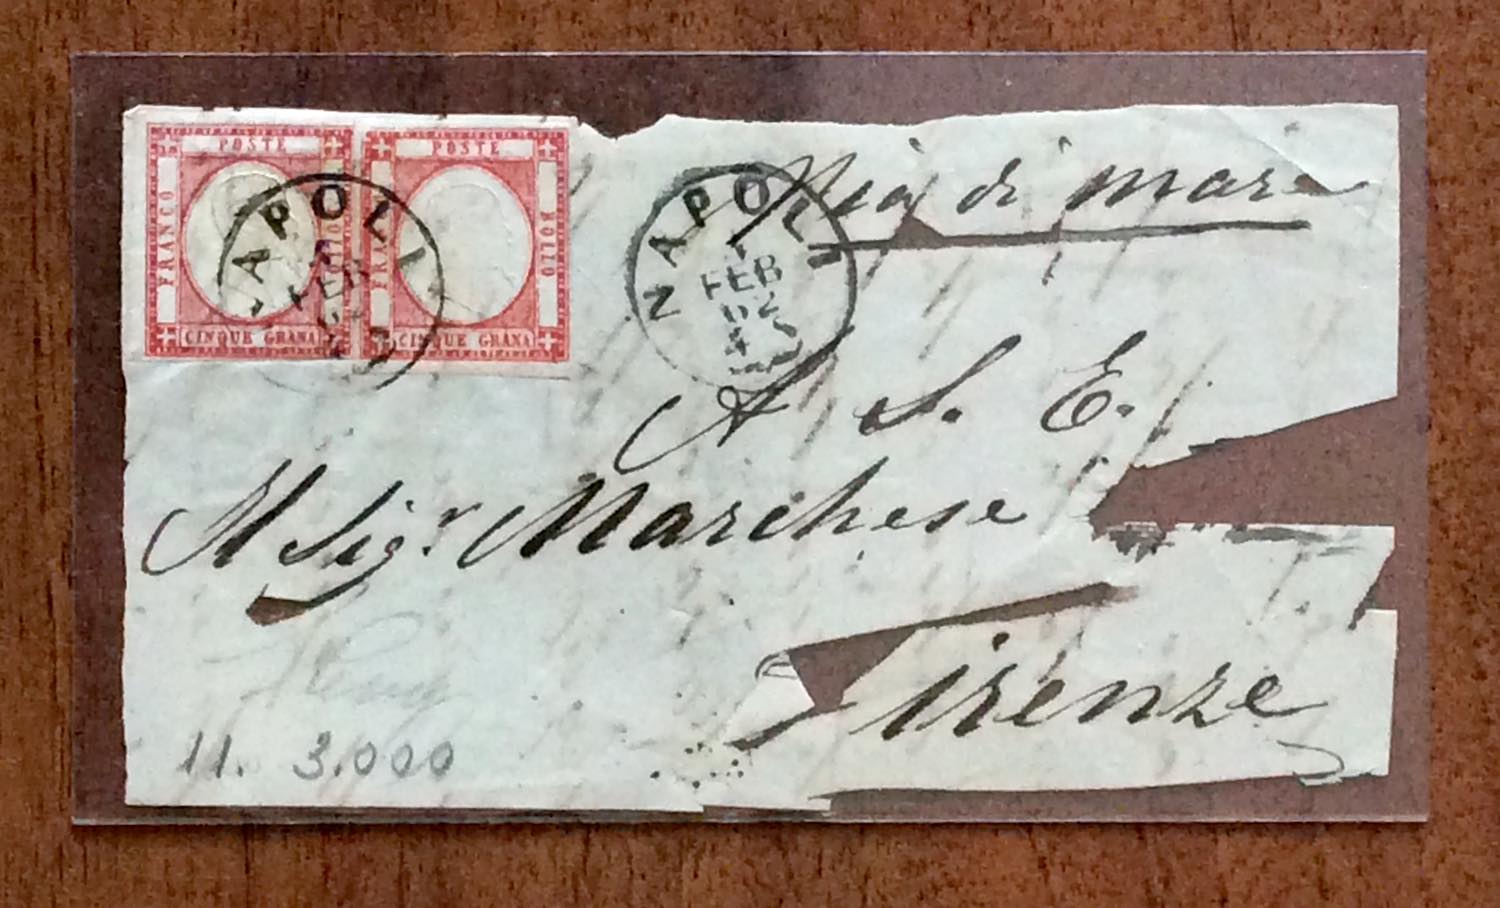 POSTE POSTE
FRANCO BOLLO FRANCO BOLLO
CINQUE GRANA CINQUE GRANA
NAPOLI
FEB
NAPOLI
1
FEB
62
Via di mare
A S. E.
Il Sigr Marchese
Firenze
11. 3.000